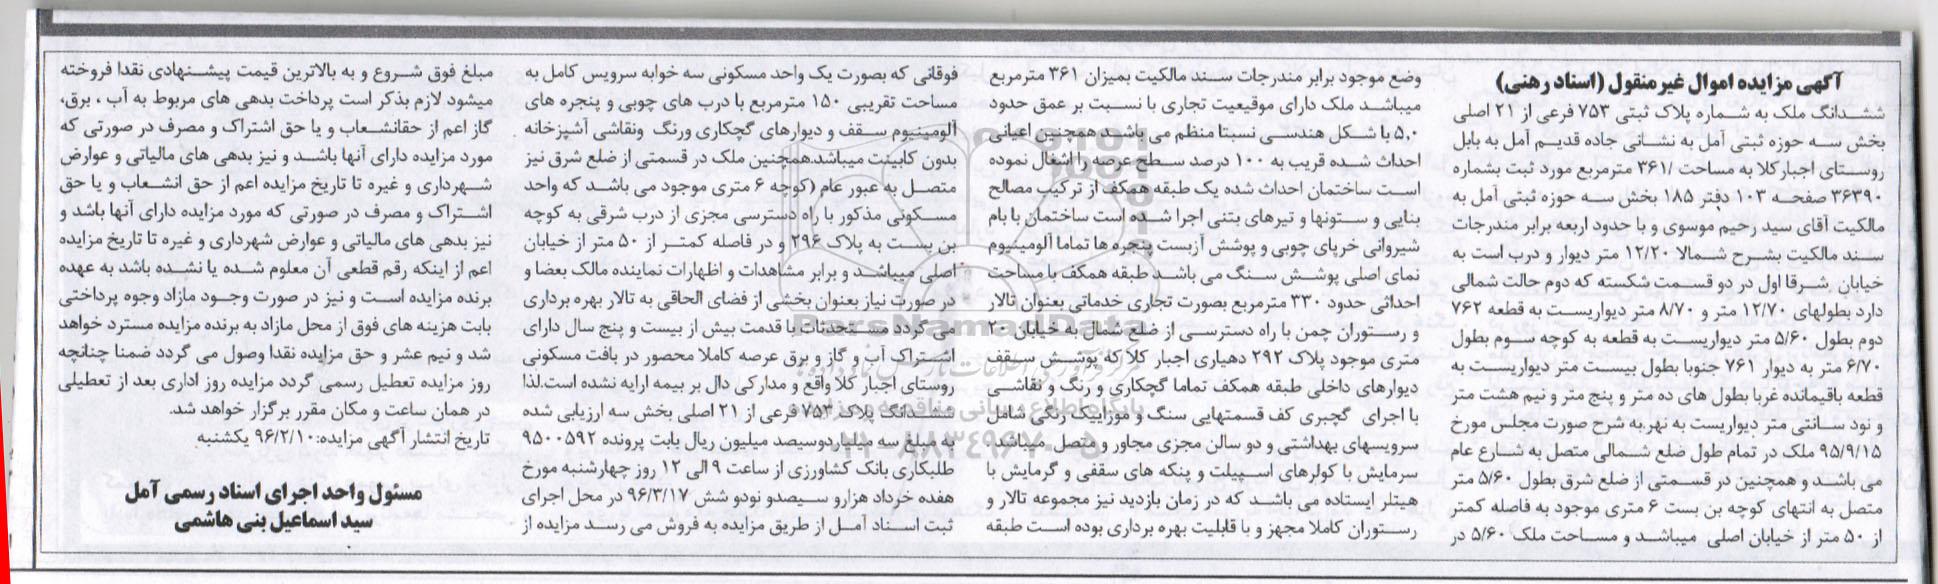 آگهی مزایده اموال غیرمنقول (اسناد رهنی)
ششدانگ ملک به شماره پلاک ثبتی ۷۵۳ فرعی از ۲۱ اصلی
بخش سه حوزه ثبتی آمل به نشانی جاده قدیم آمل به بابل
روستای اجبارکلا به مساحت /۳۶۱ مترمربع مورد ثبت بشماره
۳۶۳۹۰ صفحه ۱۰۳ دفتر ۱۸۵ بخش سه حوزه ثبتی آمل به
مالکیت آقای سید رحیم موسوی و با حدود اربعه برابر مندرجات
سند مالکیت بشرح شمالا ۱۲/۲۰ متر دیوار و درب است به
خیابان شرقا اول در دو قسمت شکسته که دوم حالت شمالی
دارد بطولهای ۱۲/۷۰ متر و ۸/۷۰ متر دیواریست به قطعه ۷۶۲
دوم بطول ۵/۶۰ متر دیواریست به قطعه به کوچه سوم بطول
۶/۷۰ متر به دیوار ۷۶۱ جنوبا بطول بیست متر دیواریست به
قطعه باقیمانده غربا بطول های ده متر و پنج متر و نیم هشت متر
و نود سانتی متر دیواریست به نهر.به شرح صورت مجلس مورخ
۹۵/۹/۱۵ ملک در تمام طول ضلع شمالی متصل به شارع عام
می باشد و همچنین در قسمتی از ضلع شرق بطول ۵/۶۰ متر
متصل به انتهای کوچه بن بست ۶ متری موجود به فاصله کمتر
از ۵۰ متر از خیابان اصلی میباشد و مساحت ملک ۵/۶۰ در
وضع موجود برابر مندرجات سند مالکیت بمیزان ۳۶۱ مترمربع
میباشد ملک دارای موقیعیت تجاری با نسبت بر عمق حدود
۵,۰ با شکل هندسی نسبتا منظم می باشد همچنین اعیانی
احداث شده قریب به ۱۰۰ درصد سطح عرصه را اشغال نموده
است ساختمان احداث شده یک طبقه همکف از ترکیب مصالح
بنایی و ستونها و تیرهای بتنی اجرا شده است ساختمان با بام
شیروانی خرپای چوبی و پوشش آزبست پنجره ها تماما آلومینیوم
نمای اصلی پوشش سنگ می باشد طبقه همکف با مساحت
احداثی حدود ۳۳۰ مترمربع بصورت تجاری خدماتی بعنوان تالار
و رستوران چمن با راه دسترسی از ضلع شمال به خیابان ۲۰
متری موجود پلاک ۲۹۲ دهیاری اجبار کلا که پوشش سقف
دیوارهای داخلی طبقه همکف تماما گچکاری و رنگ و نقاشی
با اجرای گچبری کف قسمتهایی سنگ و موزاییک رنگی شامل
سرویسهای بهداشتی و دو سالن مجزی مجاور و متصل میباشد
سرمایش با کولرهای اسپیلت و پنکه های سقفی و گرمایش با
هیتلر ایستاده می باشد که در زمان بازدید نیز مجموعه تالار و
رستوران کاملا مجهز و با قابلیت بهره برداری بوده است طبقه
فوقانی که بصورت یک واحد مسکونی سه خوابه سرویس کامل به
مساحت تقریبی ۱۵۰ مترمربع با درب های چوبی و پنجره های
آلومینیوم سقف و دیوارهای گچکاری ورنگ ونقاشی آشپزخانه
بدون کابینت میباشد.همچنین ملک در قسمتی از ضلع شرق نیز
متصل به عبور عام (کوچه ۶ متری موجود می باشد که واحد
مسکونی مذکور با راه دسترسی مجزی از درب شرقی به کوچه
بن بست به پلاک ۲۹۶ و در فاصله کمتر از ۵۰ متر از خیابان
اصلی میباشد و برابر مشاهدات و اظهارات نماینده مالک بعضا و
در صورت نیاز بعنوان بخشی از فضای الحاقی به تالار بهره برداری
می گردد مستحدثات با قدمت بیش از بیست و پنج سال دارای
اشتراک آب و گاز و برق عرصه کاملا محصور در بافت مسکونی
روستای اجبار کلا واقع و مدارکی دال بر بیمه ارایه نشده است.لذا
ششدانگ پلاک ۷۵۳ فرعی از ۲۱ اصلی بخش سه ارزیابی شده
به مبلغ سه میلیاردوسیصد میلیون ریال بابت پرونده ۹۵۰۰۵۹۲
طلبکاری بانک کشاورزی از ساعت ۹ الی ۱۲ روز چهارشنبه مورخ
هفده خرداد هزارو سیصدو نودو شش ۹۶/۳/۱۷ در محل اجرای
ثبت اسناد آمل از طریق مزایده به فروش می رسد مزایده از
مبلغ فوق شروع و به بالاترین قیمت پیشنهادی نقدا فروخته
میشود لازم بذکر است پرداخت بدهی های مربوط به آب ، برق،
گاز اعم از حقانشعاب و یا حق اشتراک و مصرف در صورتی که
مورد مزایده دارای آنها باشد و نیز بدهی های مالیاتی و عوارض
شهرداری و غیره تا تاریخ مزایده اعم از حق انشعاب و یا حق
اشتراک و مصرف در صورتی که مورد مزایده دارای آنها باشد و
نیز بدهی های مالیاتی و عوارض شهرداری و غیره تا تاریخ مزایده
اعم از اینکه رقم قطعی آن معلوم شده یا نشده باشد به عهده
برنده مزایده است و نیز در صورت وجود مازاد وجوه پرداختی
بابت هزینه های فوق از محل مازاد به برنده مزایده مسترد خواهد
شد و نیم عشر و حق مزایده نقدا وصول می گردد ضمنا چنانچه
روز مزایده تعطیل رسمی گردد مزایده روز اداری بعد از تعطیلی
در همان ساعت و مکان مقرر برگزار خواهد شد.
تاریخ انتشار آگهی مزایده:۹۶/۲/۱۰ یکشنبه
مسئول واحد اجرای اسناد رسمی آمل
سید اسماعیل بنی هاشمی
ParsNamadData
۰۲۱-۸۸۳۴۹۶۷۰-۵